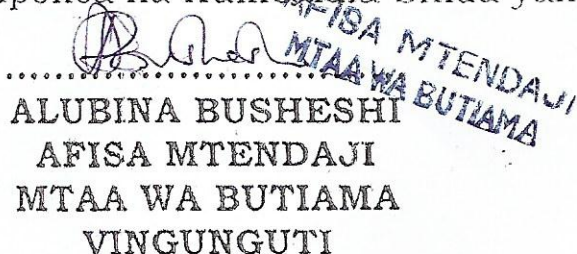 AFISA MTENDAJI
MTAA WA BUTIAMA
ALUBINA BUSHESHI
AFISA MTENDAJI
MTAA WA BUTIAMA
VINGUNGUTI